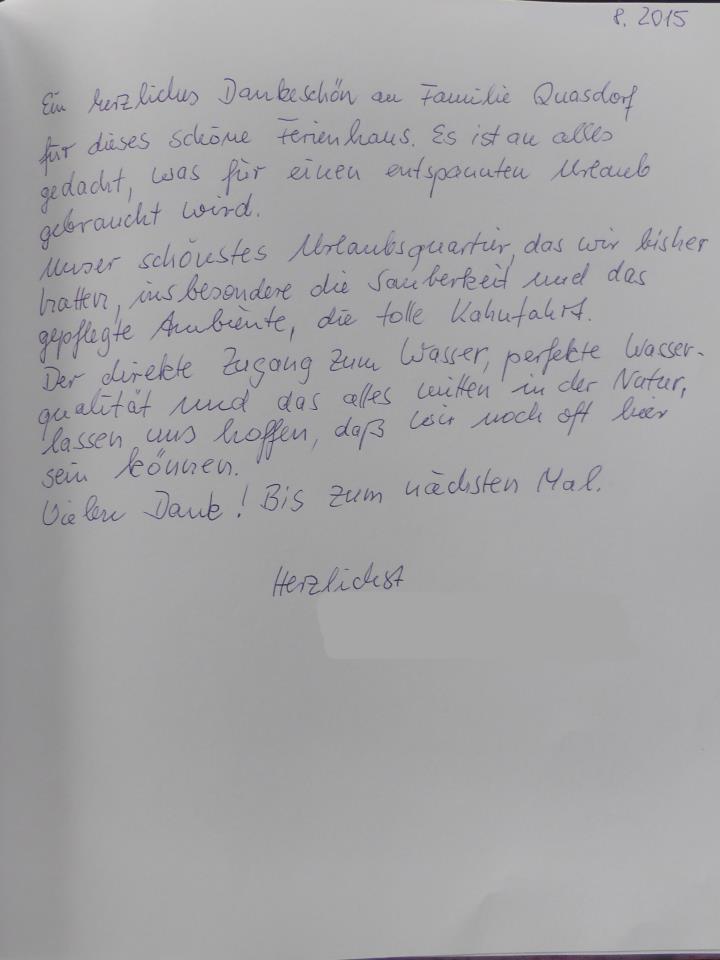 8. 2015
Ein herzliches Dankeschön an Familie Quasdorf
für dieses schöne Ferienhaus. Es ist an alles
gedacht, was für einen entspannten Urlaub
gebraucht wird.
Unser schönstes Urlaubsquartier, das wir bisher
hatten, insbesondere die Sauberkeit und das
gepflegte Ambiente, die tolle Kahnfahrt.
Der direkte Zugang zum Wasser, perfekte Wasser-
qualität und das alles mitten in der Natur,
lassen uns hoffen, daß wir noch oft hier
sein können.
Vielen Dank! Bis zum nächsten Mal.
Herzlichst